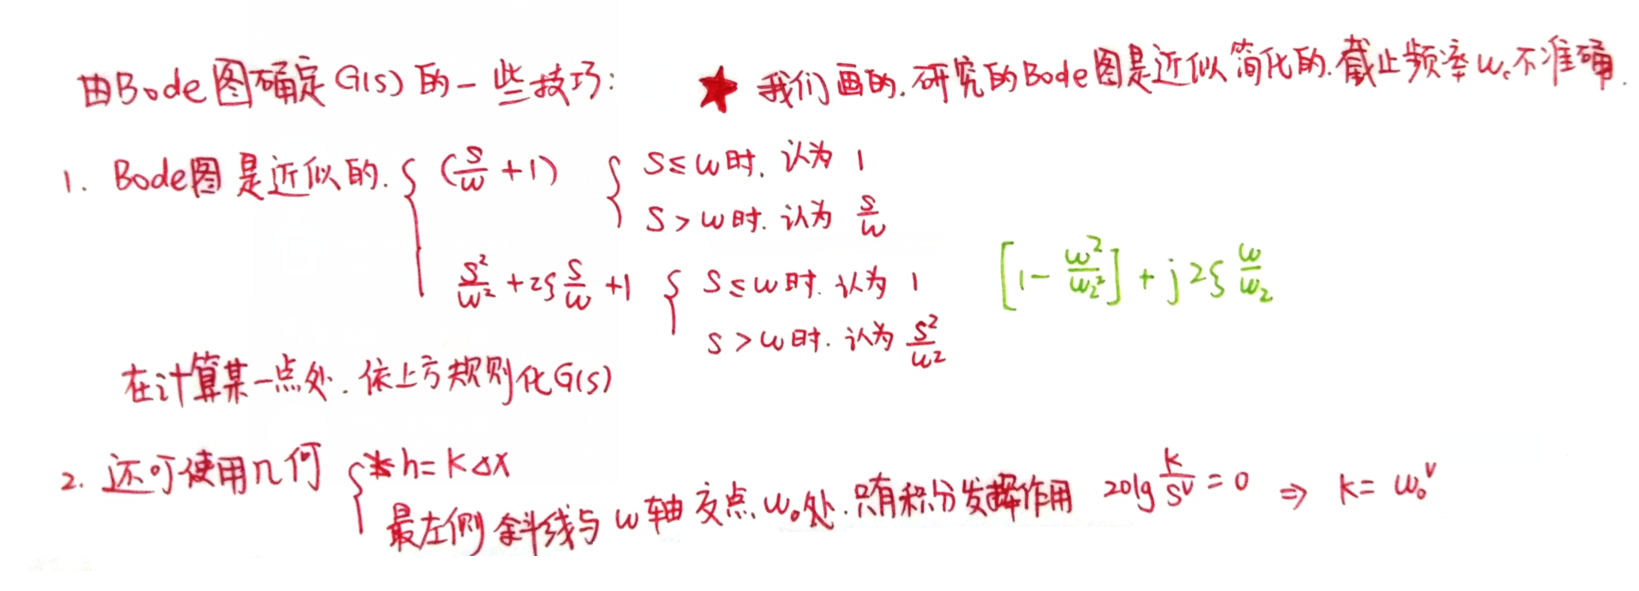 由Bode图确定G(s)的一些技巧: ★ 我们画的.研究的Bode图是近似简化的.截止频率ωc不准确.
1. Bode图是近似的. { (s/ω + 1) { s≤ω时. 认为 1
s>ω时. 认为 s/ω
s²/ω² + 2ξ s/ω + 1 { s≤ω时. 认为 1 [1 - ω²/ω₂²] + j2ξ ω/ω₂
s>ω时. 认为 s²/ω²
在计算某一点处. 依上方规则化G(s)
2. 还可使用几何 { * h = kΔx
最左侧斜线与ω轴交点ω₀处.只有积分发挥作用 20lg k/s^ν = 0 ⇒ k = ω₀^ν